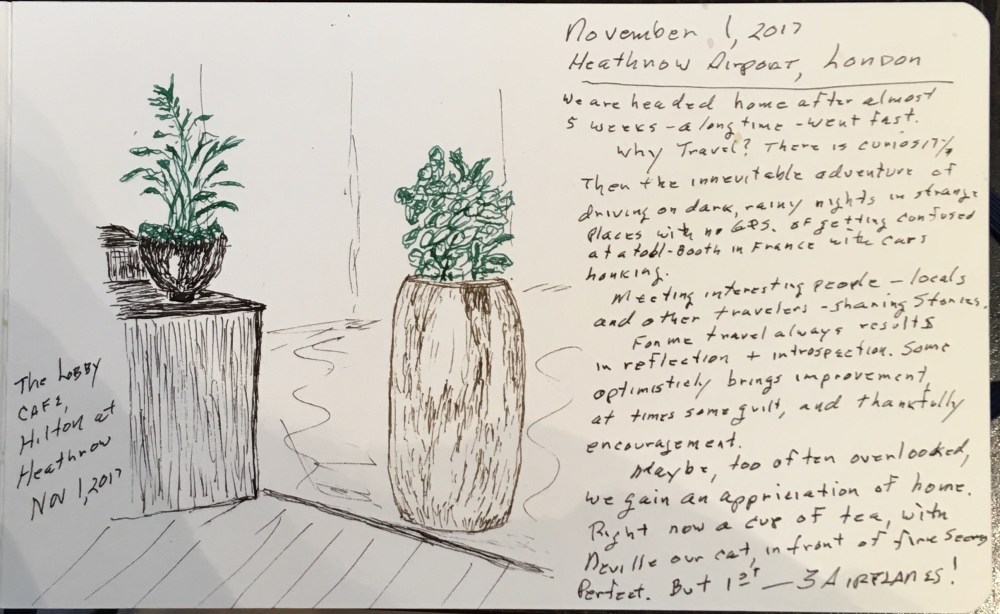 November 1, 2017
Heathrow Airport, London
We are headed home after almost
5 weeks - a long time - went fast.
Why Travel? There is curiosity,
Then the innevitable adventure of
driving on dark, rainy nights in strange
places with no GPS. Of getting confused
at a toll-Booth in France with cars
honking.
Meeting interesting people - locals
and other travelers - sharing stories.
For me travel always results
in reflection + introspection. Some
optimisticly brings improvement,
at times some guilt, and thankfully
encouragement.
Maybe, too often overlooked,
we gain an appriciation of home.
Right now a cup of tea, with
Neville our cat, in front of fire seems
Perfect. But 1st - 3 AIRPLANES!
The Lobby
CAFE,
Hilton at
Heathrow
Nov 1, 2017